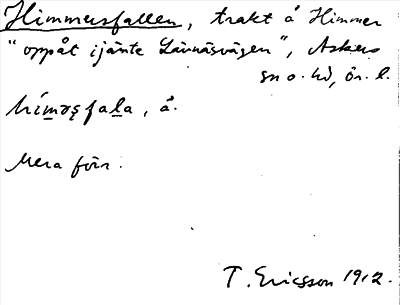 Himmersfallen, trakt å Himmer
"oppåt ijänte Lännäsvägen", Askers
sn o. hd, ör. l.
hímərsfala, å.
Mera förr.
T. Ericsson 1912.